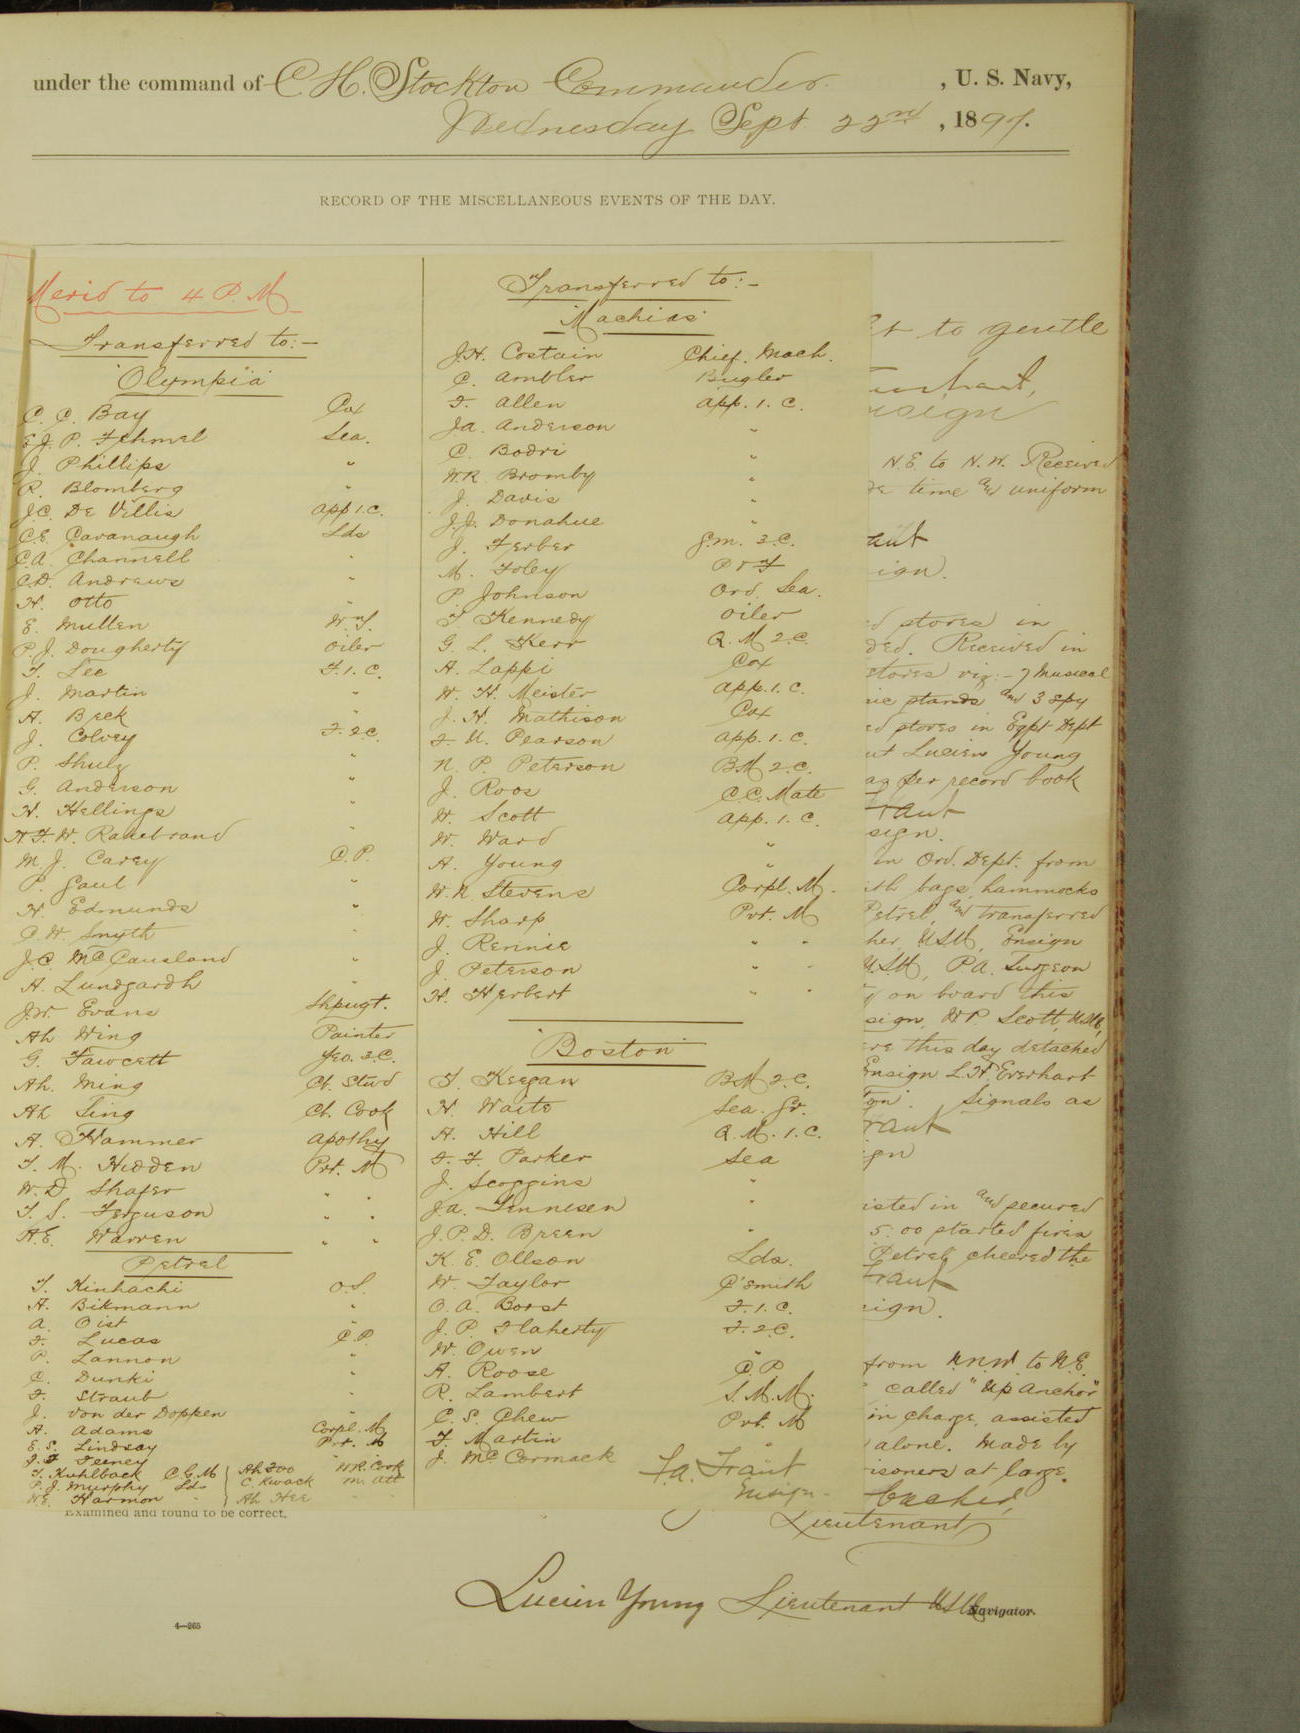 under the command of C. H. Stockton Commander , U. S. Navy,
Wednesday Sept 22nd , 1897.
RECORD OF THE MISCELLANEOUS EVENTS OF THE DAY.
Merid to 4 P.M
Transferred to:-
"Olympia"
C. C. Bay Cox
E.J. P. Fehmel Sea.
J. Phillips "
R. Blomberg "
J.C. De Villis app 1.C.
C.E. Cavanaugh Lds
C.A. Channell "
C.D. Andrews "
H. Otto "
E. Mullen W.T.
P.J. Dougherty Oiler
T. Lee F.1.C.
J. Martin "
A. Beck "
J. Colvey F.2.C.
P. Shulz "
G. Anderson "
H. Hellings "
H.F.W. Rauebrand "
M.J. Carey C.P.
P. Gaul "
H. Edmunds "
C.W. Smyth "
J.C. McCausland "
A. Lundgardh "
J.W. Evans Shpwgt.
Ah Wing Painter
G. Fawcett Yeo. 3.C.
Ah. Ming Cb. Stwd
Ah Sing Cb. Cook
A. Hammer apothy
T. M. Hedden Pvt. M
W. D. Shafer " "
T. S. Ferguson " "
A.E. Warren " "
Petrel
T. Kinhachi O.S.
A. Bikmann "
A. Oist "
F. Lucas C.P.
P. Lannon "
C. Dunki "
F. Straub "
J. von der Doppen "
A. Adams Corpl. M
E. S. Lindsay Pvt. M
J.F. Feeney "
T. Kuhlback C.G.M Ah Foo W.R. Cook
P. J. Murphy Lds C. Kwack M. Att
W.E. Harmon " Ah Hee " "
Transferred to:-
"Machias"
J.H. Costain Chief. Mach.
C. Ambler Bugler
F. Allen app. 1. C.
J.A. Anderson "
C. Bodri "
W.R. Bromby "
J. Davis "
J.J. Donahue "
J. Ferber G.M. 3.C.
M. Foley P & F
P. Johnson Ord. Sea.
T. Kennedy Oiler
G. L. Kerr Q. M 2.C.
A. Lappi Cox
W. H. Meister app. 1. C.
J. H. Mathison Cox
F. U. Pearson app. 1. C.
N. P. Peterson BM 2.C.
J. Roos C.C. Mate
W. Scott app. 1. C.
W. Ward "
A. Young "
W.N Stevens Corpl. M.
W. Sharp Pvt. M
J. Rennie " "
J. Peterson " "
H. Herbert " "
"Boston"
T. Keegan BM 2.C.
H. Waite Sea. Gr.
A. Hill Q.M. 1.C.
F. F. Parker Sea
J. Scoggins "
J.A. Tennesen "
J.P.D. Breen "
K. E. Ollson Lds.
W. Taylor C'smith
O. A. Borst F.1.C.
J. P. Flaherty F.2.C.
W. Owen "
A. Roose C.P
R. Lambert S.M.M.
C. S. Chew Pvt. M
F. Martin "
J. McCormack "
F.A. Traut
Ensign
to gentle
N.E. to N.W. Received
time and uniform
stores in
Received in
stores viz:- 7 Musical
stands and 3 spy
stores in Eqpt Dept
Lucien Young
as per record book
in Ord. Dept. from
bags, hammocks
Petrel, and transferred
USN, Ensign
USN, P.A. Surgeon
on board this
W.P. Scott, USN,
this day detached
Ensign L.H. Everhart
Signals as
in and secured
5:00 started fires
Petrel, cheered the
from N.N.W to N.E.
called "Up Anchor"
in charge, assisted
alone. Made by
at large.
Lieutenant
Examined and found to be correct.
Lucien Young Lieutenant USN Navigator.
4—265